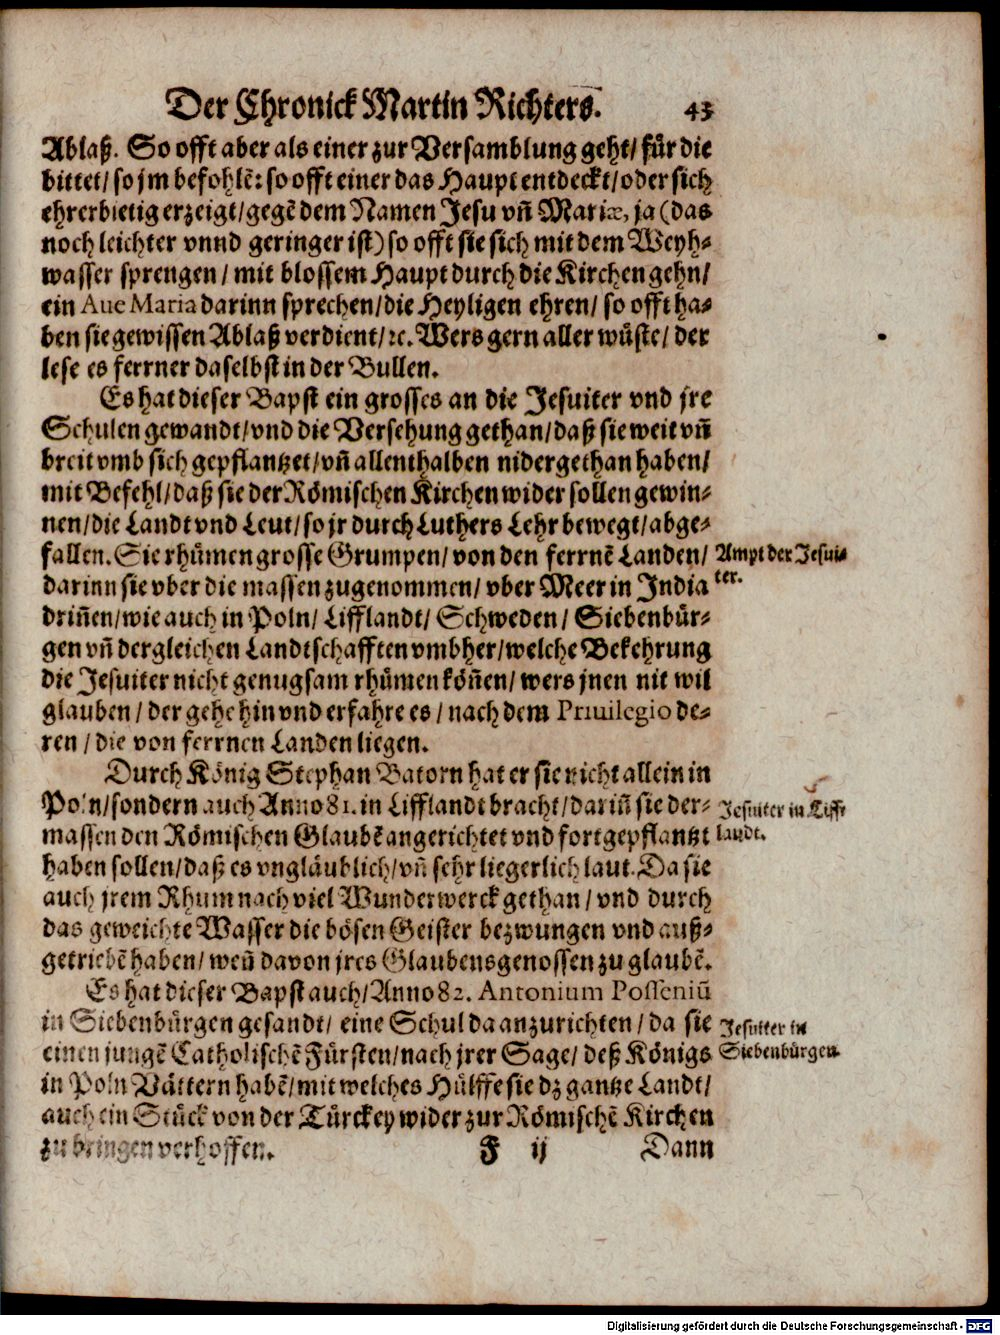 Der Chronick Martin Richters. 43
Ablaß. So offt aber als einer zur Versamblung geht/ für die
bittet/ so jm befohlẽ: so offt einer das Haupt entdeckt/ oder sich
ehrerbietig erzeigt/ gegẽ dem Namen Jesu vñ Mariæ, ja (das
noch leichter vnnd geringer ist) so offt sie sich mit dem Weyh-
wasser sprengen/ mit blossem Haupt durch die Kirchen gehn/
ein Aue Maria darinn sprechen/ die Heyligen ehren/ so offt ha-
ben sie gewissen Ablaß verdient/ ꝛc. Wers gern aller wüste/ der
lese es ferrner daselbst in der Bullen.
Es hat dieser Bapst ein grosses an die Jesuiter vnd jre
Schulen gewandt/ vnd die Versehung gethan/ daß sie weit vñ
breit vmb sich gepflantzet/ vñ allenthalben nidergethan haben/
mit Befehl/ daß sie der Römischen Kirchen wider sollen gewin-
nen/ die Landt vnd Leut/ so jr durch Luthers Lehr bewegt/ abge-
fallen. Sie rhümen grosse Grumpen/ von den ferrnẽ Landen/
Ampt der Jesui-
ter.
darinn sie vber die massen zugenommen/ vber Meer in India
driñen/ wie auch in Poln/ Lifflandt/ Schweden/ Siebenbür-
gen vñ dergleichen Landtschafften vmbher/ welche Bekehrung
die Jesuiter nicht genugsam rhümen köñen/ wers jnen nit wil
glauben/ der gehe hin vnd erfahre es/ nach dem Priuilegio de-
ren/ die von ferrnen Landen liegen.
Durch König Stephan Batorn hat er sie nicht allein in
Poln/ sondern auch Anno 81. in Lifflandt bracht/ dariñ sie der-
Jesuiter in Liff-
landt.
massen den Römischen Glaubẽ angerichtet vnd fortgepflantzt
haben sollen/ daß es vngläublich/ vñ sehr liegerlich laut. Da sie
auch jrem Rhum nach viel Wunderwerck gethan/ vnd durch
das geweichte Wasser die bösen Geister bezwungen vnd auß-
getriebẽ haben/ weñ davon jres Glaubensgenossen zu glaubẽ.
Es hat dieser Bapst auch/ Anno 82. Antonium Posseniũ
in Siebenbürgen gesandt/ eine Schul da anzurichten/ da sie
Jesuiter in
Siebenbürgen.
einen jungẽ Catholischẽ Fürsten/ nach jrer Sage/ deß Königs
in Poln Vättern habẽ/ mit welches Hülffe sie dz gantze Landt/
auch ein Stück von der Türckey wider zur Römischẽ Kirchen
zu bringen verhoffen.
F ij Dann
Digitalisierung gefördert durch die Deutsche Forschungsgemeinschaft - DFG